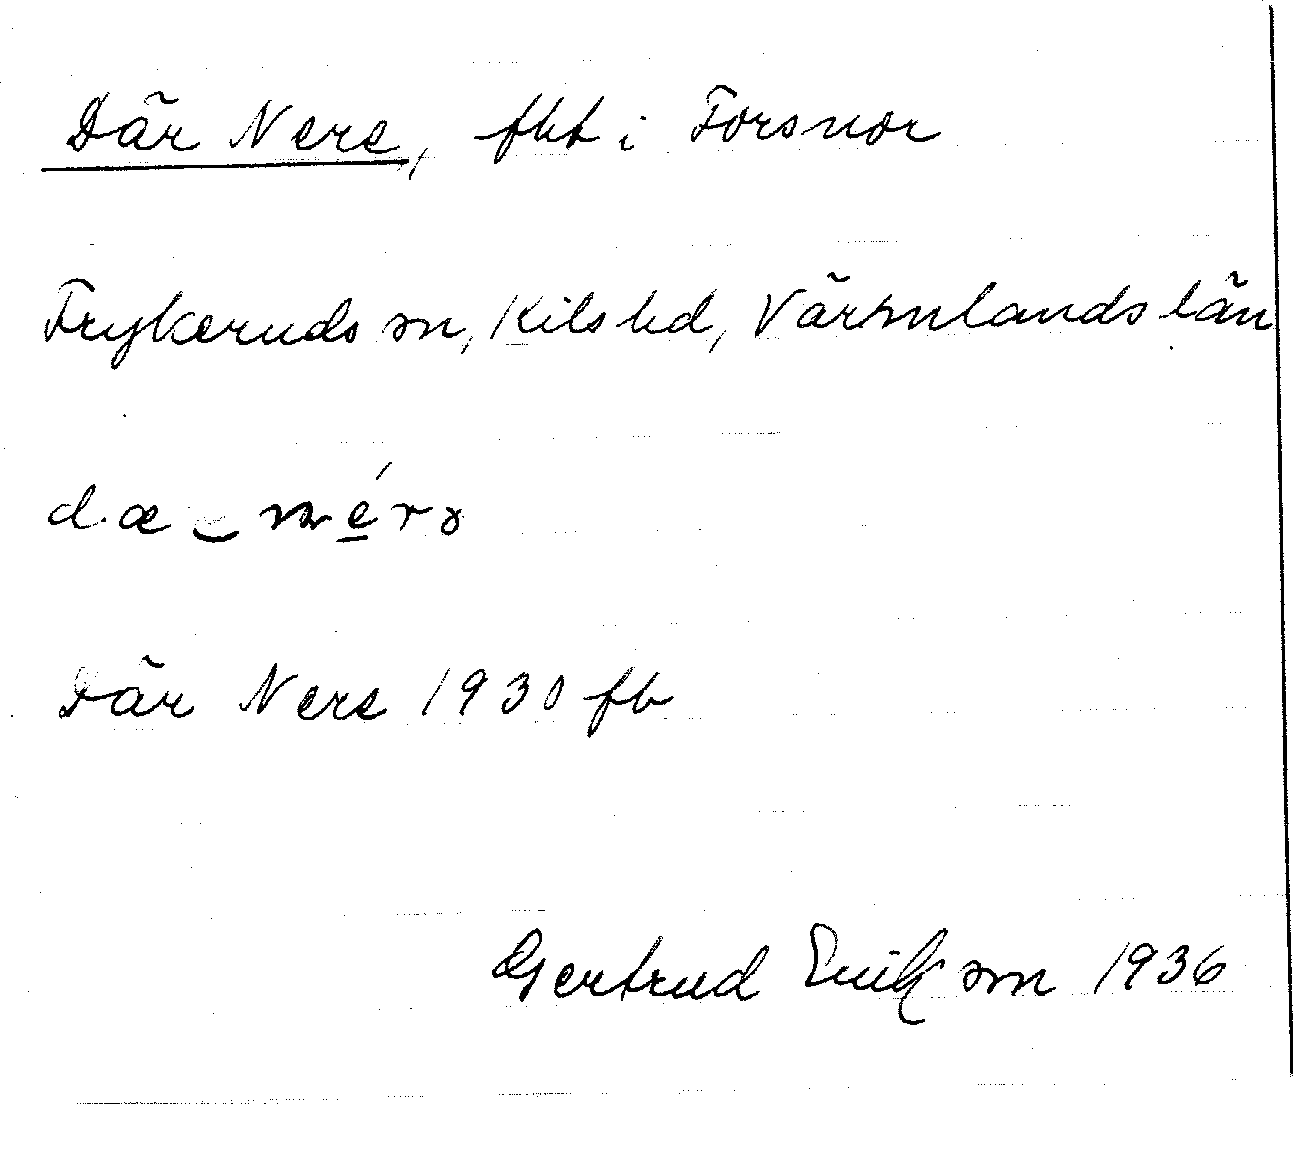 Där Nere, fbt i Forsnor
Frykeruds sn, Kils hd, Värmlands län
Där Nere 1930 fb
Gertrud Erikson 1936